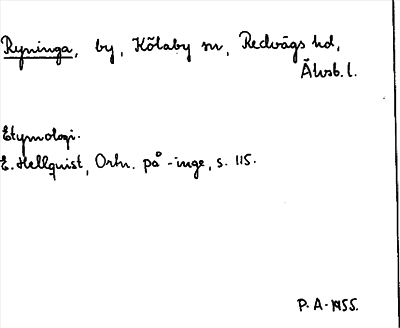 Ryninga, by, Kölaby sn, Redvägs hd,
Älvsb. l.
Etymologi.
E. Hellquist, Ortn. på -inge, s. 115.
P. A. 1955.